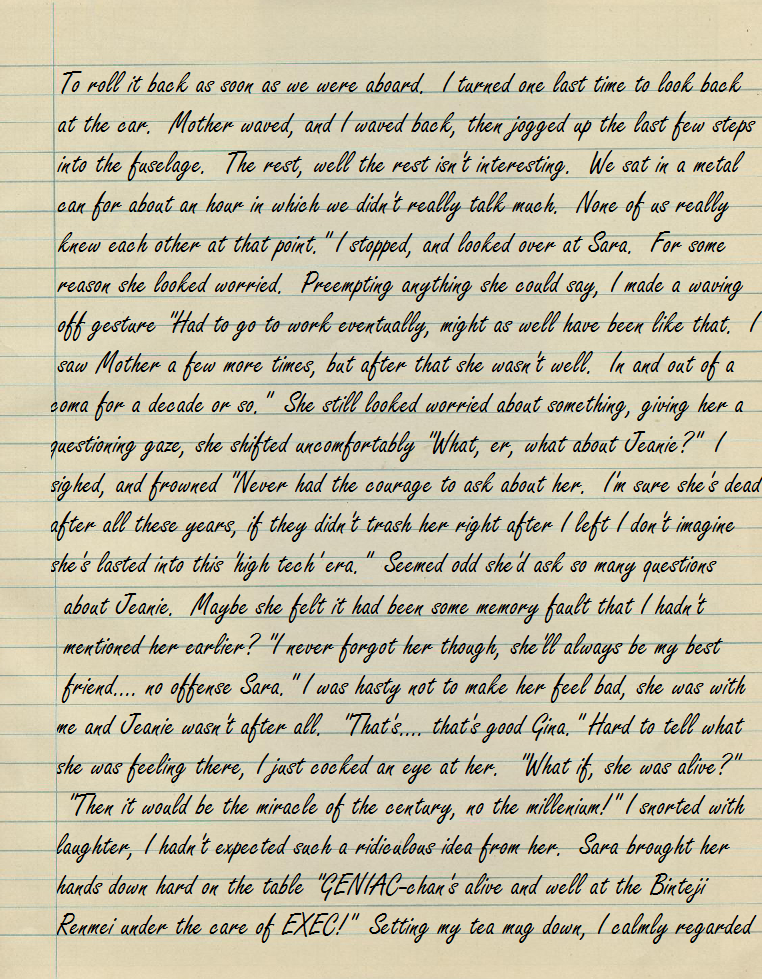 To roll it back as soon as we were aboard.  I turned one last time to look back
at the car.  Mother waved, and I waved back, then jogged up the last few steps
into the fuselage.  The rest, well the rest isn't interesting.  We sat in a metal
can for about an hour in which we didn't really talk much.  None of us really
knew each other at that point." I stopped, and looked over at Sara.  For some
reason she looked worried.  Preempting anything she could say, I made a waving
off gesture "Had to go to work eventually, might as well have been like that.  I
saw Mother a few more times, but after that she wasn't well.  In and out of a
coma for a decade or so."  She still looked worried about something, giving her a
questioning gaze, she shifted uncomfortably "What, er, what about Jeanie?"  I
sighed, and frowned "Never had the courage to ask about her.  I'm sure she's dead
after all these years, if they didn't trash her right after I left I don't imagine
she's lasted into this 'high tech' era."  Seemed odd she'd ask so many questions
about Jeanie.  Maybe she felt it had been some memory fault that I hadn't
mentioned her earlier? "I never forgot her though, she'll always be my best
friend.... no offense Sara." I was hasty not to make her feel bad, she was with
me and Jeanie wasn't after all.  "That's.... that's good Gina." Hard to tell what
she was feeling there, I just cocked an eye at her.  "What if, she was alive?"
"Then it would be the miracle of the century, no the millenium!" I snorted with
laughter, I hadn't expected such a ridiculous idea from her.  Sara brought her
hands down hard on the table "GENIAC-chan's alive and well at the Binteji
Renmei under the care of EXEC!"  Setting my tea mug down, I calmly regarded